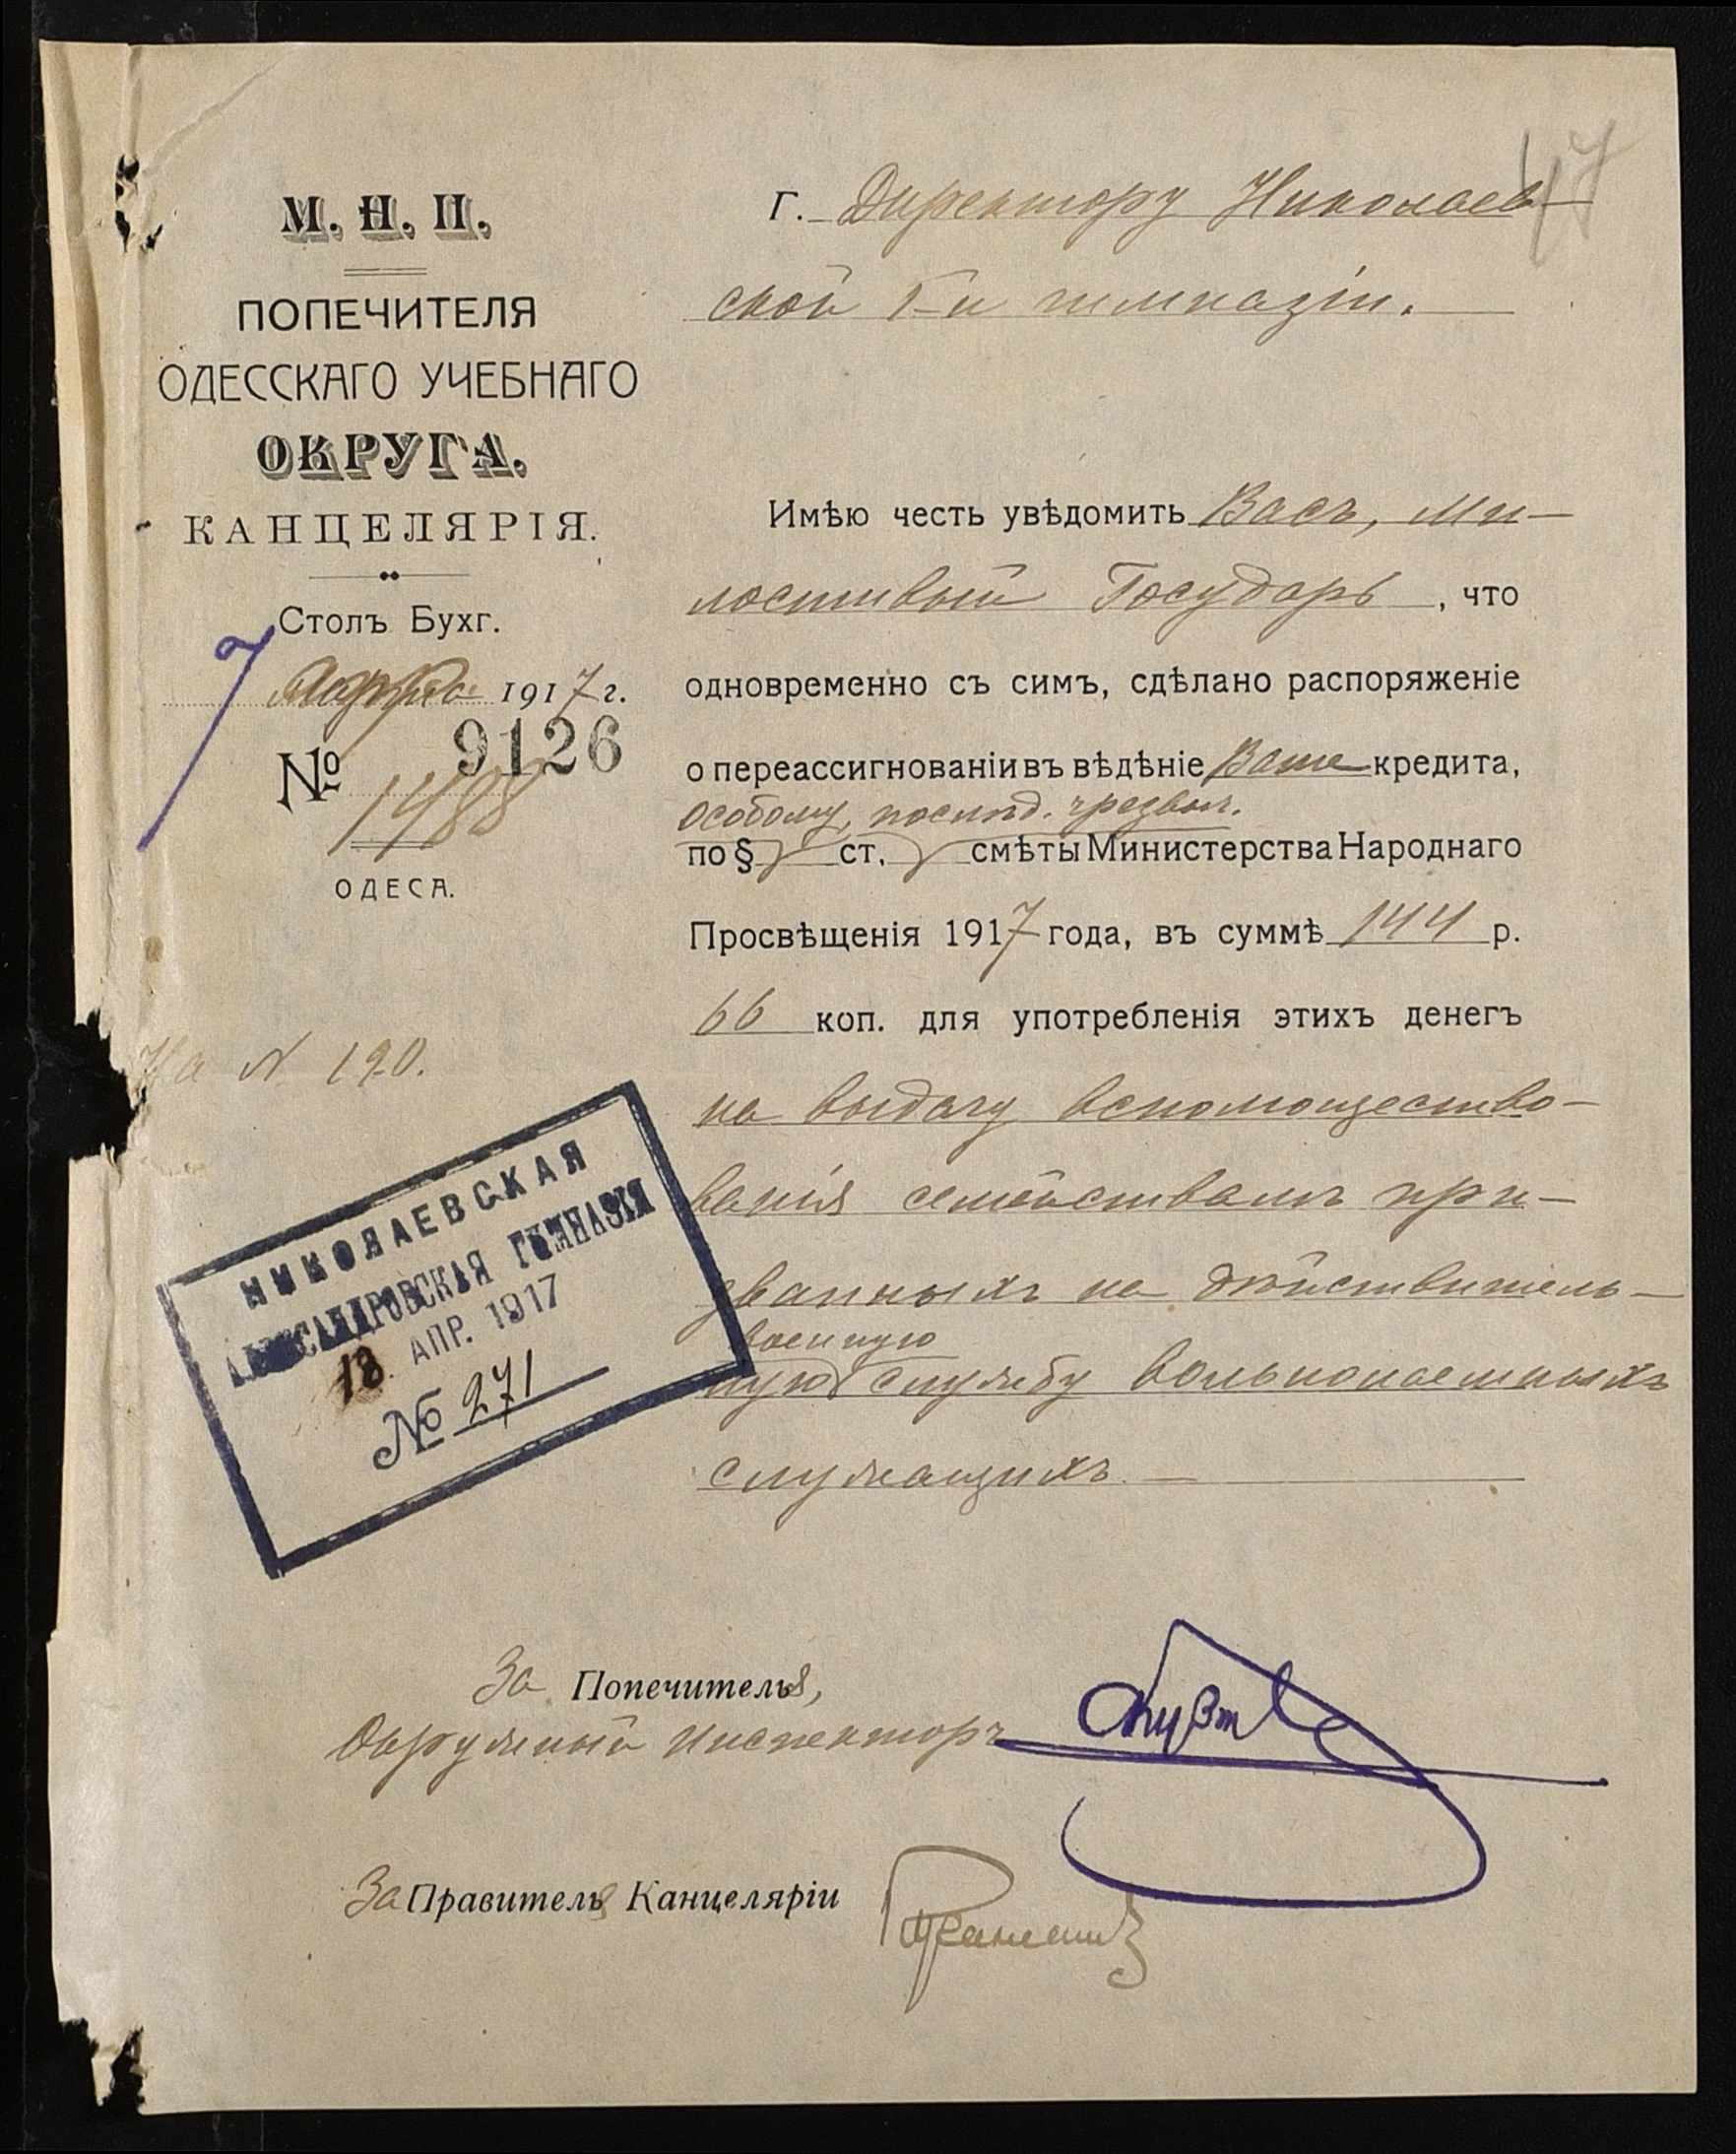 47
М. Н. П.
ПОПЕЧИТЕЛЯ
ОДЕССКАГО УЧЕБНАГО
ОКРУГА.
КАНЦЕЛЯРІЯ.
Столъ Бухг.
7 1917 г.
№ 9126
1488
ОДЕСА.
На N. 190.
НИКОЛАЕВСКАЯ
АЛЕКСАНДРОВСКАЯ ГИМНАЗІЯ
18 АПР. 1917
№ 271
Г. Директору Николаев-
ской 1-й гимназіи.
Имѣю честь увѣдомить Васъ, Ми-
лостивый Государь, что
одновременно съ симъ, сдѣлано распоряженіе
о переассигнованіи въ вѣдѣніе Ваше кредита,
особому, послѣд. чрезвыч.
по § ст. смѣты Министерства Народнаго
Просвѣщенія 1917 года, въ суммѣ 144 р.
66 коп. для употребленія этихъ денегъ
на выдачу вспомощество-
ванія семействамъ при-
званныхъ на дѣйствитель-
военную
ную службу вольнонаемныхъ
служащихъ.
За Попечителя,
Окружный Инспекторъ
За Правителя Канцеляріи